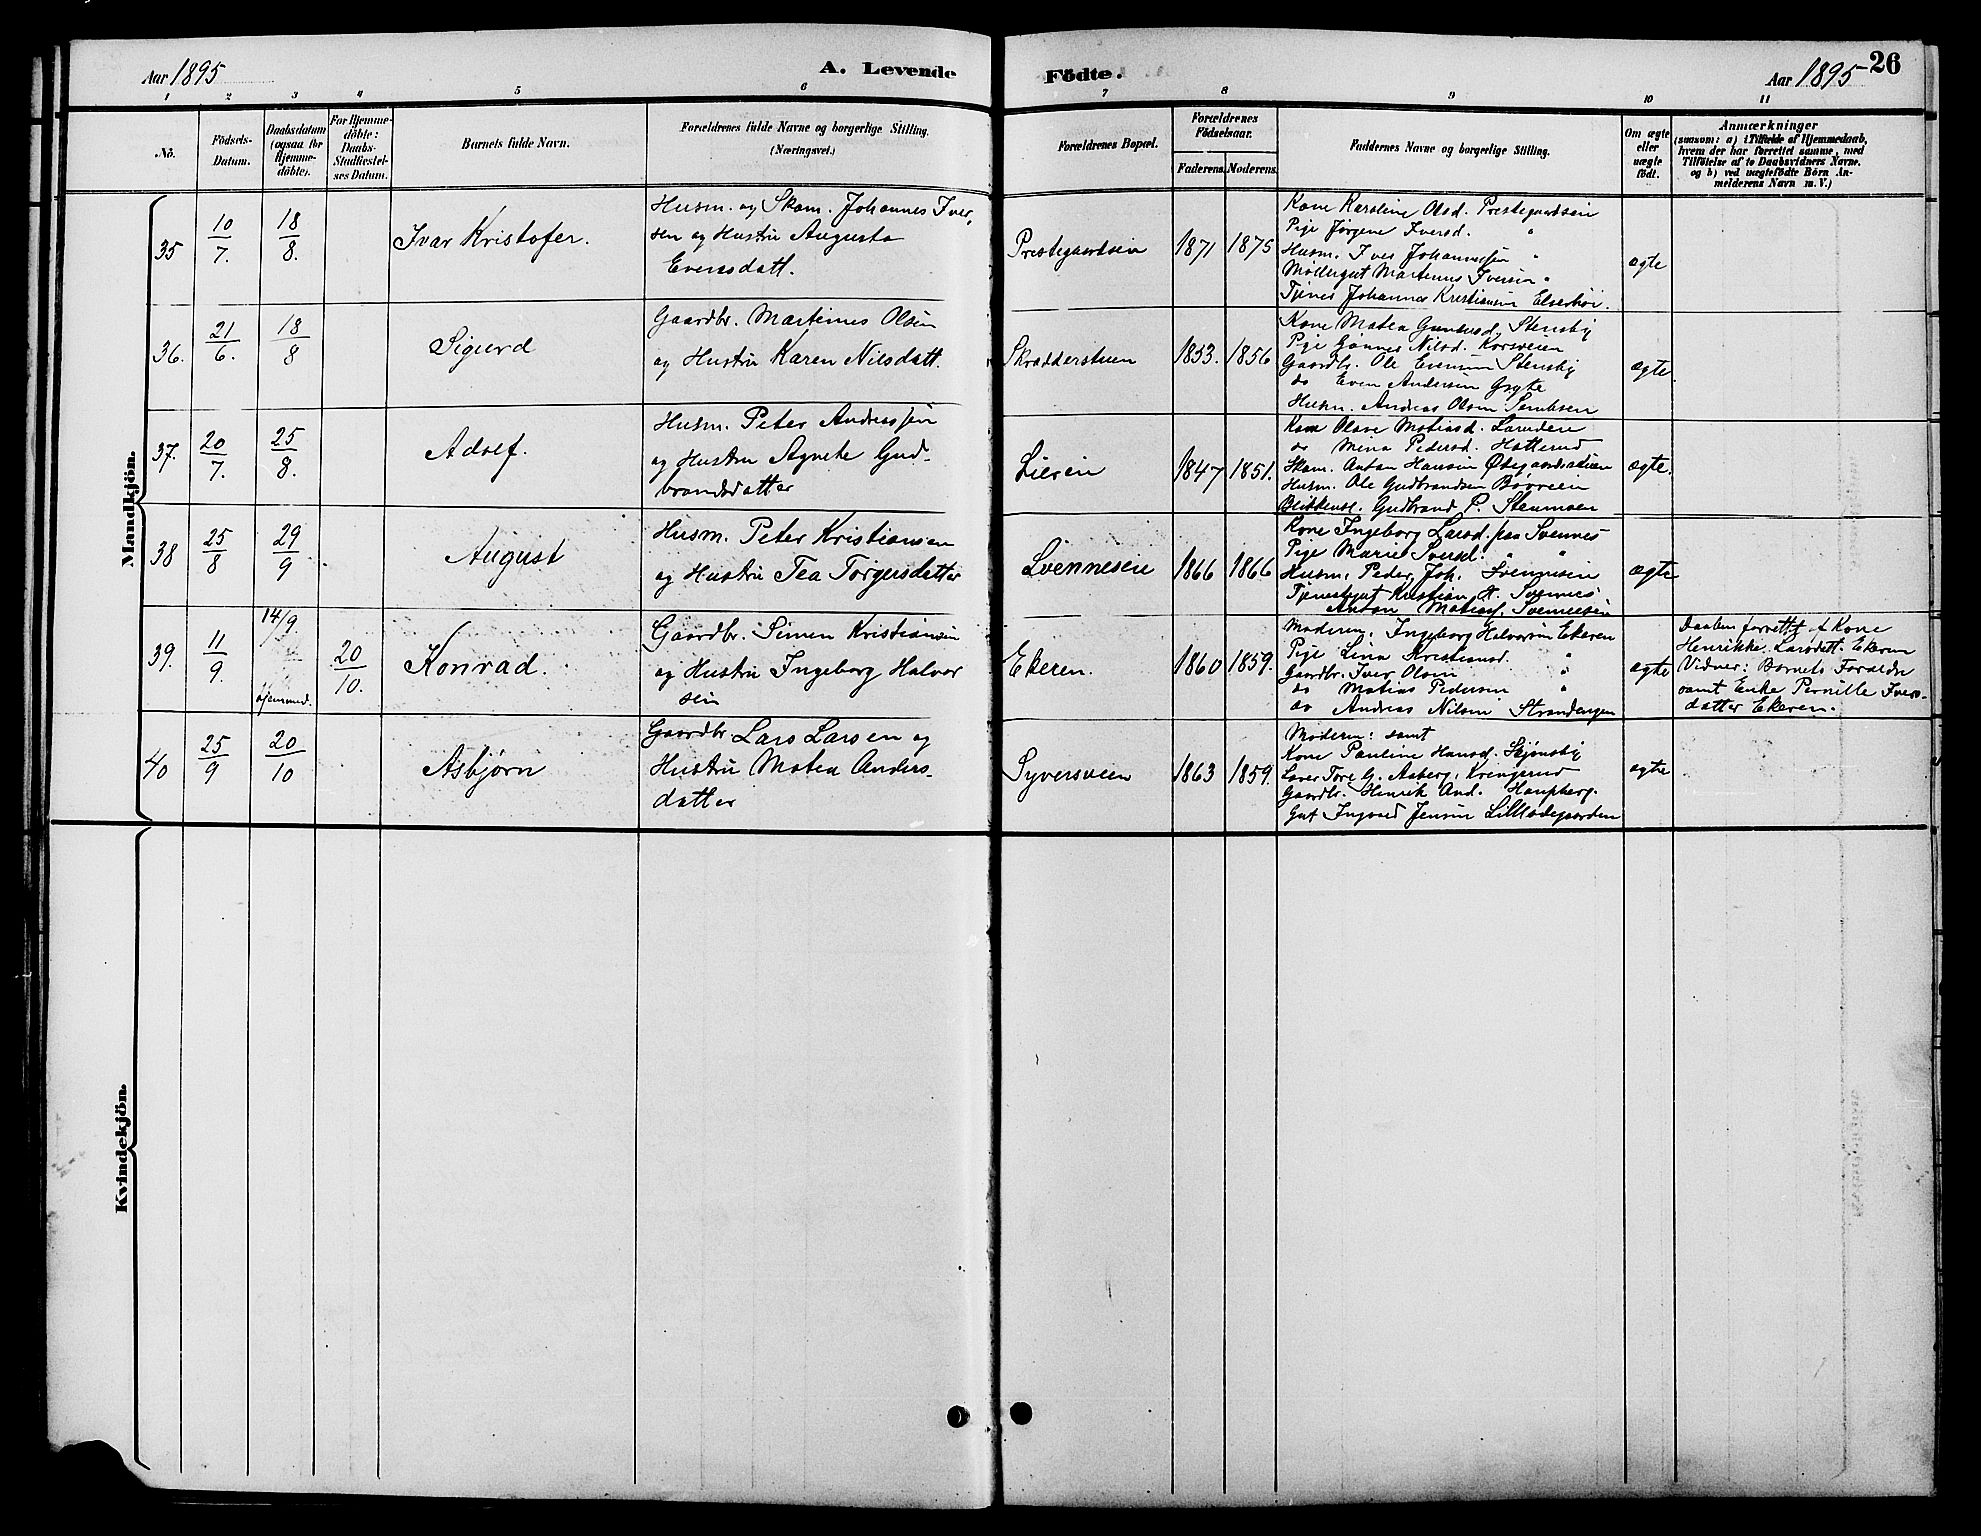 Aar 1895
A. Levende
Födte.
Aar 1895
26
1 2 3 4 5 6 7 8 9 10 11
No.
Födsels-
Datum.
Daabsdatum
(ogsaa for
Hjemme-
döbte).
For Hjemme-
döbte:
Daabs-
Stadfæstel-
ses Datum.
Barnets fulde Navn.
Forældrenes fulde Navne og borgerlige Stilling.
(Næringsvei.)
Forældrenes Bopæl.
Forældrenes
Födselsaar.
Faderens.
Moderens.
Faddernes Navne og borgerlige Stilling.
Om ægte
eller
uægte
födt.
Anmærkninger
(saasom: a) i Tilfælde af Hjemmedaab,
hvem der har forrettet samme, med
Tilföielse af to Daabsvidners Navne.
og b) ved uægtefödte Börn An-
melderens Navn m. V.)
Mandkjön.
35
10/7.
18/8.
Ivar Kristofer.
Husm. og Skom. Johannes Iver-
sen og Hustru Augusta
Evensdatt.
Prestegaardseie
1871
1875
Kone Karoline Olsd. Prestegaardseie
Pige Jørgine Iversd. "
Husm. Iver Johannessen "
Møllergut Martinus Iversen "
Tjenes Johannes Kristiansen
ægte
36.
21/6.
18/8
Sigurd
Gaardbr. Martinus Olsen
og Hustru Karen Nilsdatt.
Skrædderstuen
1853.
1856
Kone Matea Stensby
Pige Nilsd. Korsveien
Gaardbr. Ole Evensen Stensby
do Even Andersen Gryte
Husm. Andreas Olsen
ægte
37.
20/7.
25/8.
Adolf.
Husm. Peter Andreassen
og Hustru Agnete Gud-
brandsdatter
Lieeie
1847
1851.
Kone Olave Matiasd.
do Mina Pedersd. Hatterud
Skom. Anton Hansen
Husm. Ole Gudbrandsen
Gudbrand P. Stenmoen
ægte.
38
25/8
29/9
August
Husm. Peter Kristiansen
og Hustru Tea Torgersdatter
Svenneseie
1866
1866
Kone Ingeborg Larsd. paa Svennes
Pige Marie Iversd. " "
Husm. Peder Joh. Svenneseie
Tjenestegut Kristian H. Svennes
Anton Matias. Svenneseie
ægte
39.
11/9.
14/9.
hjemmed.
20/10.
Konrad.
Gaardbr. Simen Kristiansen
og Hustru Ingeborg Halvor
sen
Ekeren.
1860
1859.
Moderen: Ingeborg Halvorsen Ekeren
Pige Lina Kristiansd. "
Gaardbr. Iver Olsen "
do Matias Pedersen "
do Andreas Nilsen Strandengen
ægte
Daaben forrettet af Kone
Henrikke Larsdatt. Ekeren
Vidner: Barnets Forældre
samt Enke Pernille Ivers-
datter Ekeren.
40
25/9
20/10
Asbjørn
Gaardbr. Lars Larsen og
Hustru Matea Anders-
datter
Syversveen
1863
1859.
Moderen: samt
Kone Pauline Hansd. Skjønsby
Lærer Tore G. Aaberg, Krengerud
Gaardbr. Henrik And. Haugsberg.
Gut Ingvald Jensen Lilleødegaarden
ægte
Kvindekjön.